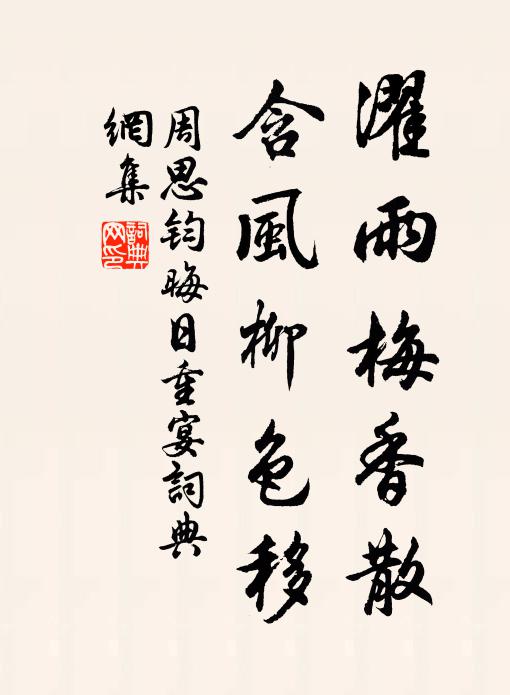 濯雨梅香散
含風柳色移
周思钧晦日重宴詞典
網集
詞典
网印